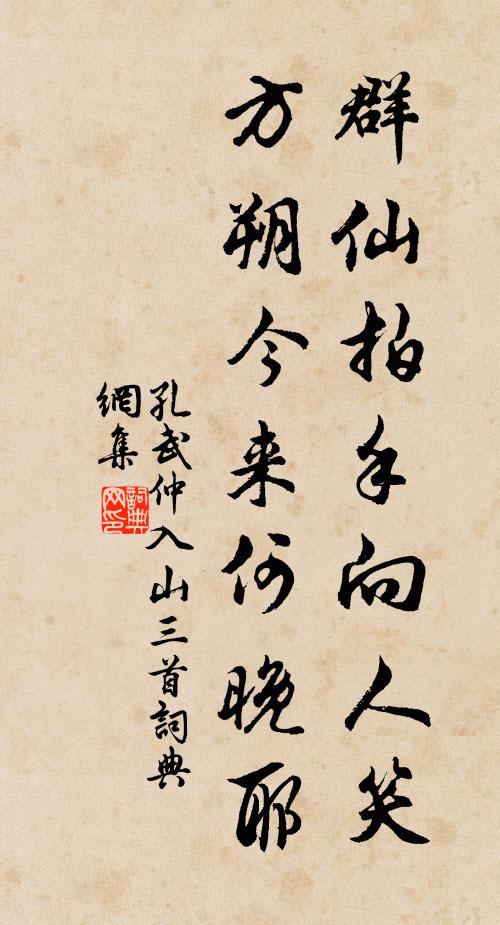 群仙拍手向人笑
方朔今来何晚耶
孔武仲入山三首詞典
網集
詞典網印